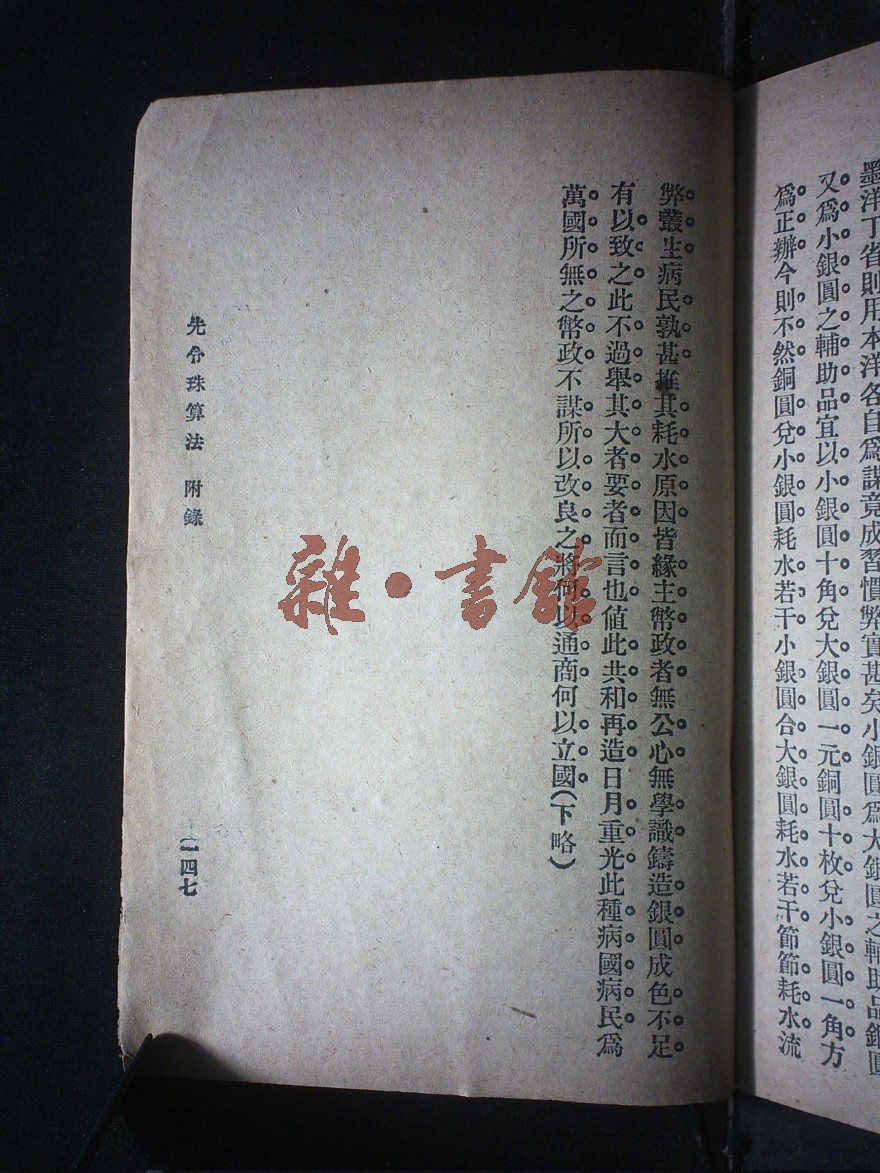 墨洋丁省則用本洋各自爲謀竟成習慣弊實甚矣小銀圓爲大銀圓之輔助品銅圓
又爲小銀圓之輔助品宜以小銀圓十角兌大銀圓一元銅圓十枚兌小銀圓一角方
爲正辦今則不然銅圓兌小銀圓耗水若干小銀圓合大銀圓耗水若干節節耗水流
弊叢生病民孰甚推其耗水原因皆緣主幣政者無公心無學識鑄造銀圓成色不足
有以致之此不過舉其大者要者而言也値此共和再造日月重光此種病國病民爲
萬國所無之幣政不謀所以改良之將何以通商何以立國(下略)
先令珠算法 附錄
一四七
雜·書館